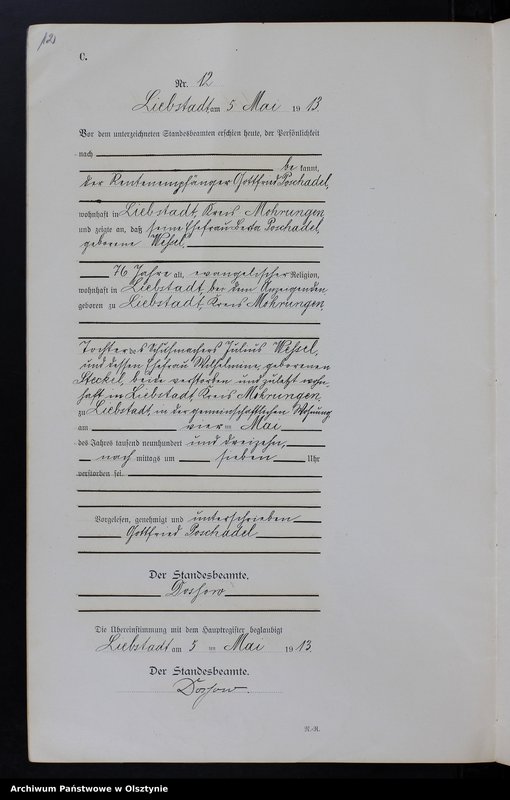 120
C.
Nr. 12
Liebstadt am 5 Mai 1913
Vor dem unterzeichneten Standesbeamten erschien heute, der Persönlichkeit
nach
be kannt,
der Rentenempfänger Gottfried Poschadel,
wohnhaft in Liebstadt, Kreis Mohrungen
und zeigte an, daß seine Ehefrau Poschadel,
geborene Wessel,
76 Jahre alt, evangelischer Religion,
wohnhaft in Liebstadt, bei dem Anzeigenden
geboren zu Liebstadt, Kreis Mohrungen,
Tochter des Schuhmachers Julius Wessel,
und dessen Ehefrau Wilhelmine, geborenen
beide verstorben und zuletzt wohn-
haft in Liebstadt, Kreis Mohrungen
zu Liebstadt, in der gemeinschaftlichen Wohnung
am vier ten Mai
des Jahres tausend neunhundert und dreizehn,
nach mittags um sieben Uhr
verstorben sei.
Vorgelesen, genehmigt und unterschrieben
Gottfried Poschadel
Der Standesbeamte.
Die Übereinstimmung mit dem Hauptregister beglaubigt
Liebstadt am 5 ten Mai 1913.
Der Standesbeamte.
N.-R.
Archiwum Państwowe w Olsztynie